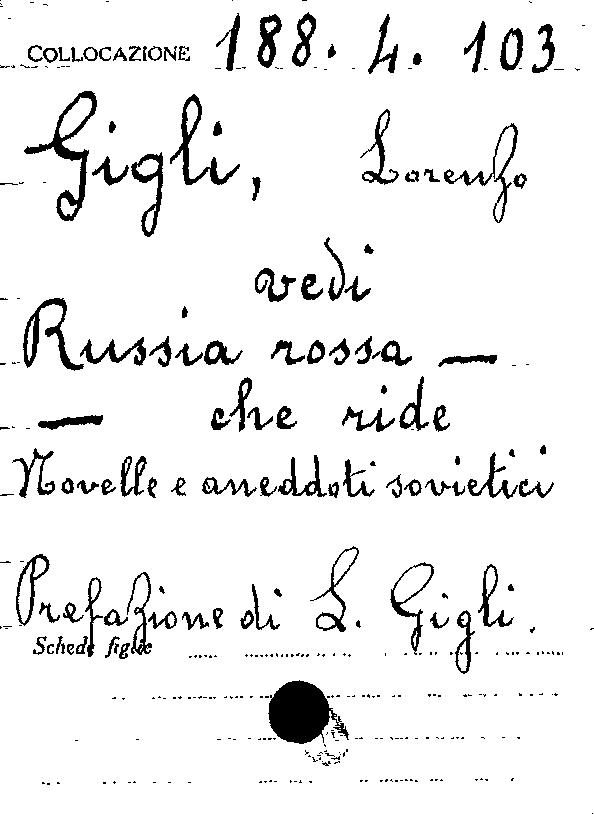 COLLOCAZIONE 188. 4. 103
Gigli, Lorenzo
vedi
Russia rossa —
— che ride
Novelle e aneddoti sovietici
Prefazione di L. Gigli.
Schede figlie